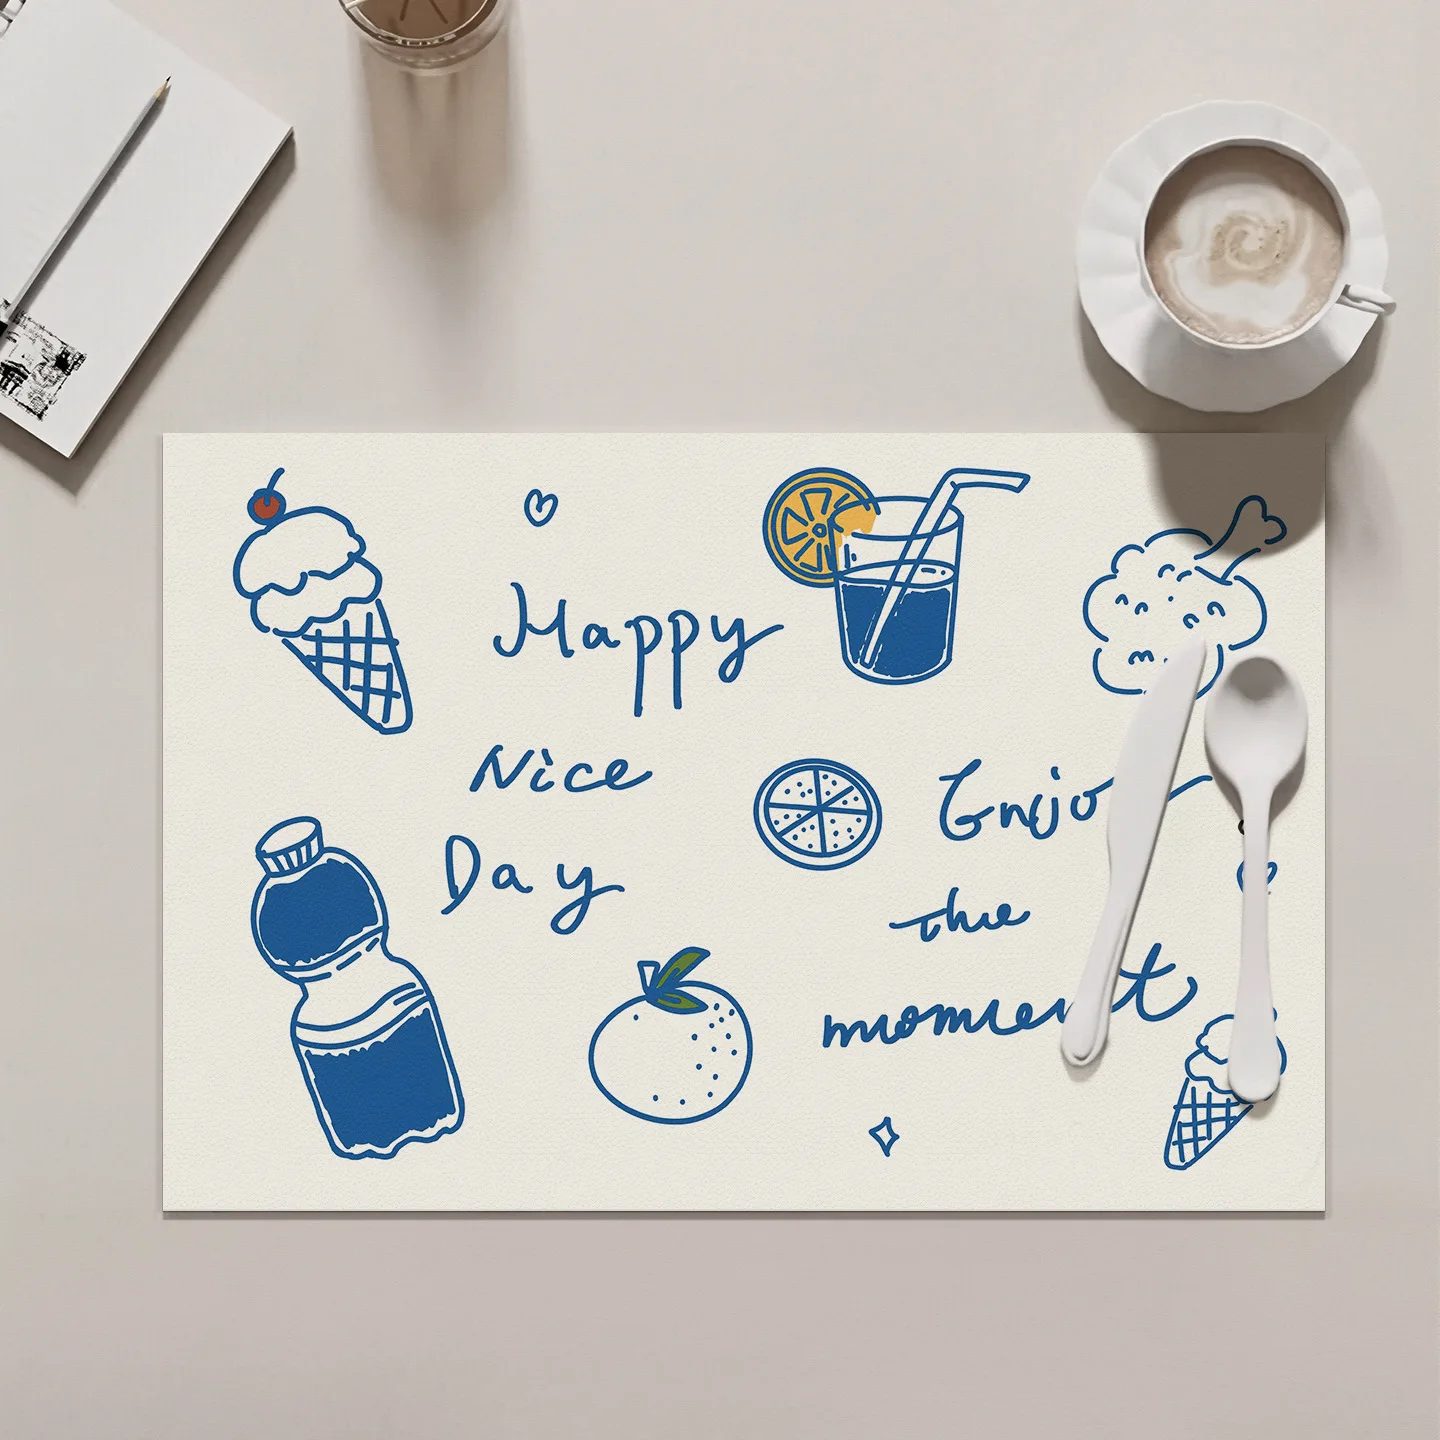 Happy
Nice
Day
Enjoy
the
moment